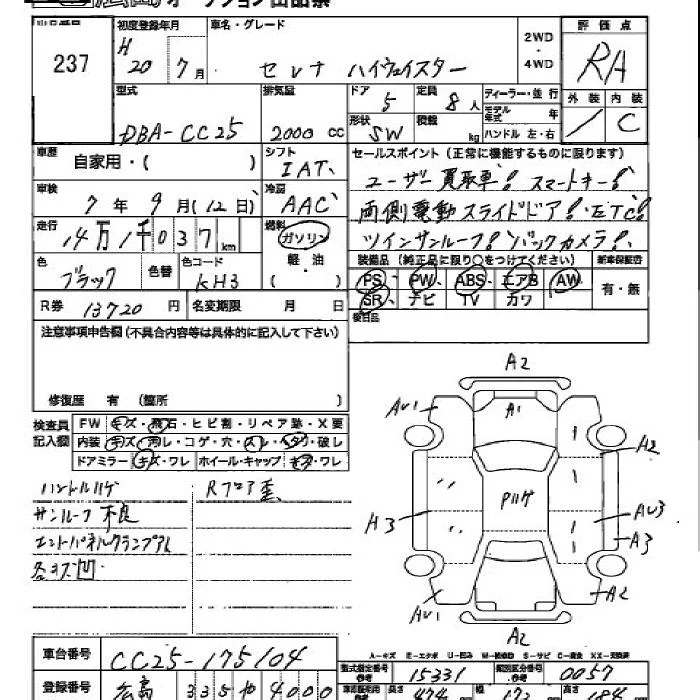 オークション出品票
出品番号 初度登録年月 車名・グレード 2WD・4WD 評価点
237 H 20 7月 セレナ ハイウェイスター RA
型式 排気量 ドア 定員 ディーラー・並行 外装 内装
DBA-CC25 2000 cc 5 8人 モデル年式 年 / C
形状 SW 積載 kg ハンドル 左・右
車歴 自家用・( ) シフト IAT セールスポイント (正常に機能するものに限ります)
車検 7年9月(12日) 冷房 AAC ユーザー買取車! スマートキー!
両側電動スライドドア! ETC!
走行 14万1千037km 燃料 ガソリン・軽・油 ( ) ツインサンルーフ! バックカメラ!
色 ブラック 色替 色コード KH3 装備品 (純正品に限り○をつけてください) 新車保証書
PS・PW・ABS・エアB・AW 有・無
R券 13720円 名変期限 月 日 SR・ナビ・TV・カワ
注意事項申告欄 (不具合内容等は具体的に記入して下さい) 後日品
修復歴 有 (箇所 )
検査員記入欄 FW キズ・飛石・ヒビ割・リペア跡・X要
内装 キズ・汚レ・コゲ・穴・スレ・ヘタリ・破レ
ドアミラー キズ・ワレ ホイール・キャップ キズ・ワレ
ハンドルハゲ Rフロア歪
サンルーフ不良
エンドパネルクランプアト
各キズ凹
A2
AU1 A1
A2
Pハゲ
A3 AU3
A3
AU1 A2
A2
A-キズ E-エクボ U-凹み W-補修跡 S-サビ C-腐食 XX-交換済
車台番号 CC25-175104 型式指定番号 参考 15331 類別区分番号 参考 0057
登録番号 広島 335 や 4000 長さ 474 幅 173 高さ 184